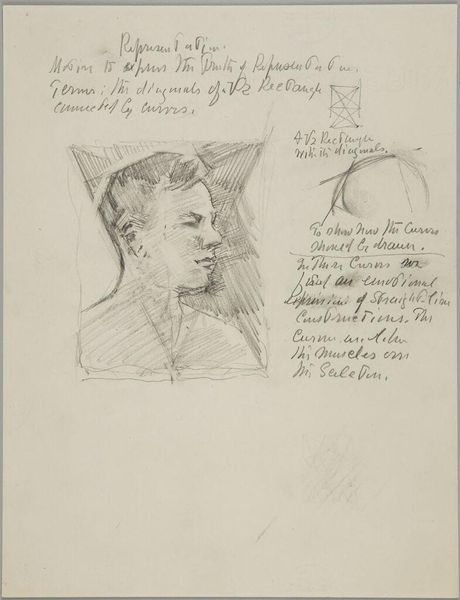 Representation.
Motive to express the Truth of Representation.
Terms: the diagonals of a √2 Rectangle
connected by curves.
A √2 Rectangle
with the diagonals.
To show how the curves
should be drawn.
In these curves we
feel an emotional
expression of straight line
constructions. The
curves are like
the muscles over
the skeleton.